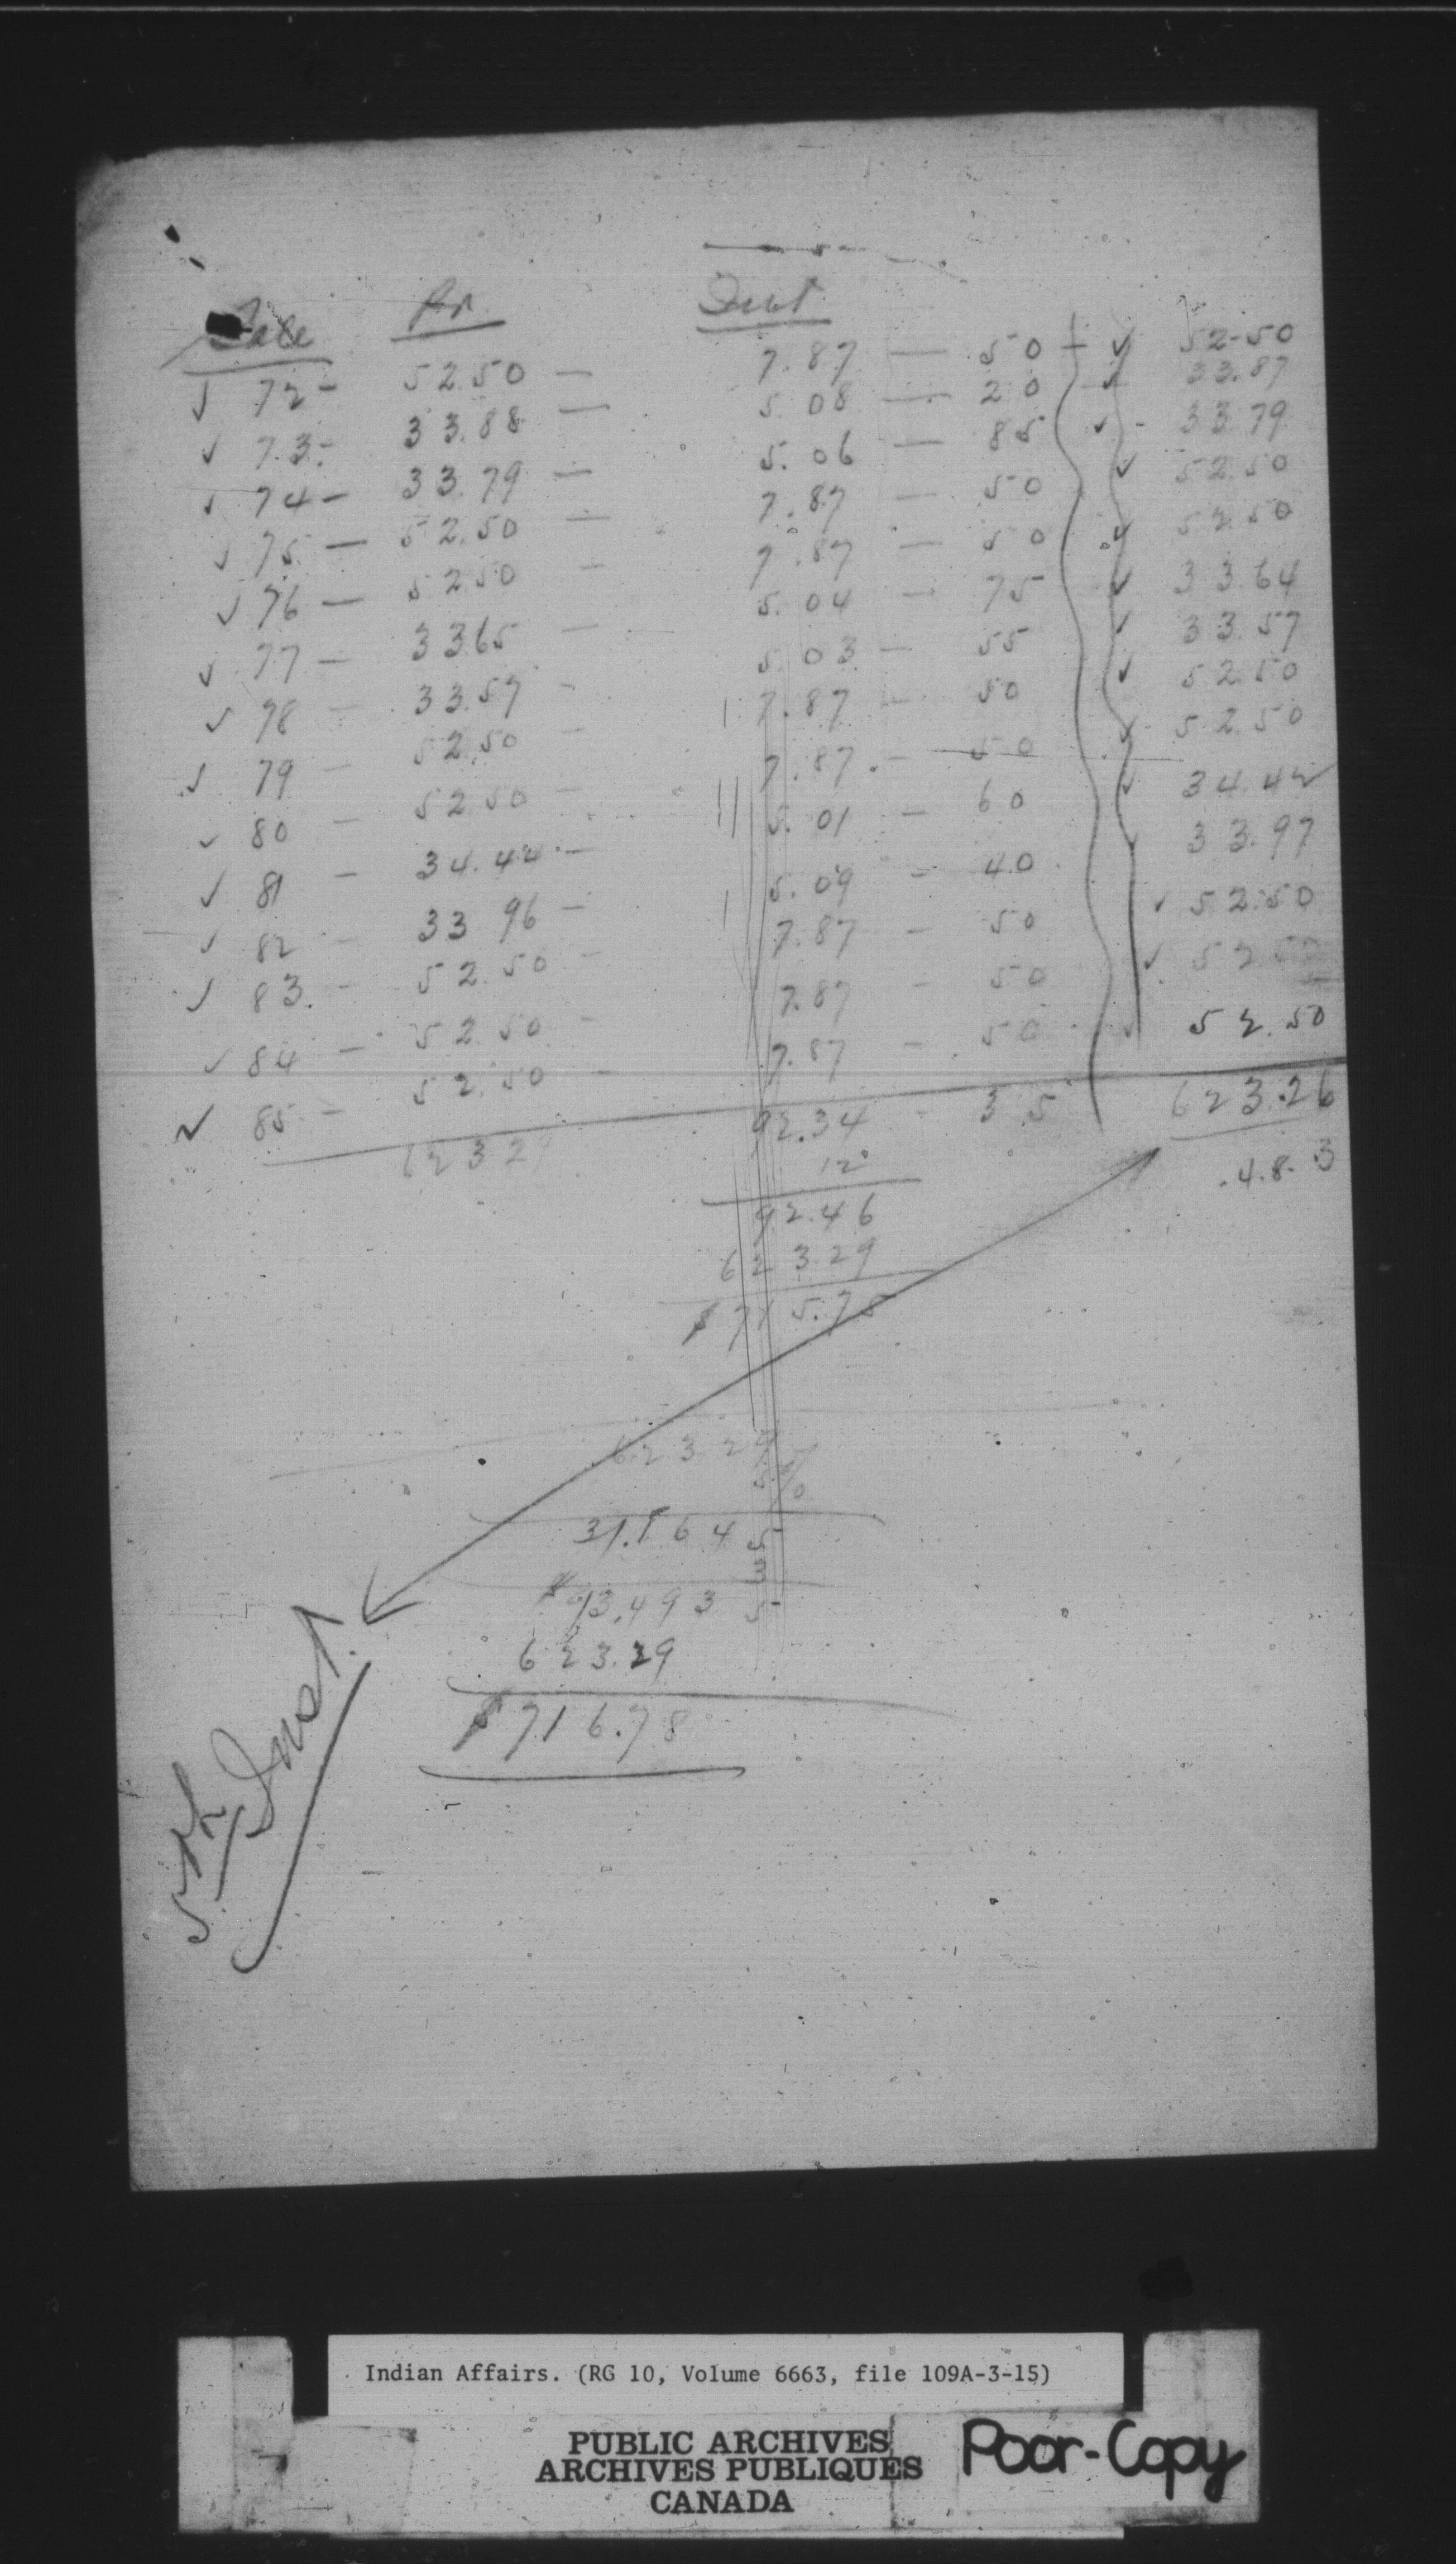 Sale Pr Int
✓ 72 - 52.50 — 7.87 — 50 ✓ 52-50
✓ 73 - 33.88 — 5.08 — 20 ✓ 33.87
✓ 74 - 33.79 — 5.06 — 85 ✓ - 33 79
✓ 75 — 52.50 — 7.87 — 50 ✓ 52.50
✓ 76 — 52 50 — 7.87 — 50 ✓ 52.50
✓ 77 — 33 65 — 5.04 — 75 ✓ 33.64
✓ 78 — 33.57 - 5.03 — 55 ✓ 33.57
✓ 79 — 52.50 — 7.87 - 50 ✓ 52.50
✓ 80 — 52 50 — 7.87. - 50 ✓ 52 50
✓ 81 — 34.44 — 5.01 — 60 ✓ 34.42
✓ 82 — 33 96 — 5.09 - 40 33.97
✓ 83. - 52.50 — 7.87 - 50 ✓ 52.50
✓ 84 — 52.50 - 7.87 - 50 ✓ 52.50
✓ 85 — 52.50 — 7.87 - 50 ✓ 52.50
623 29 92.34 3.5 623.26
12° .4.8. 3
92.46
623.29
$715.75
623.29
5%
31.1645
3
$93.4935
623.29
$716.78
5th Inst.
Indian Affairs. (RG 10, Volume 6663, file 109A-3-15)
PUBLIC ARCHIVES
ARCHIVES PUBLIQUES
CANADA
Poor-Copy